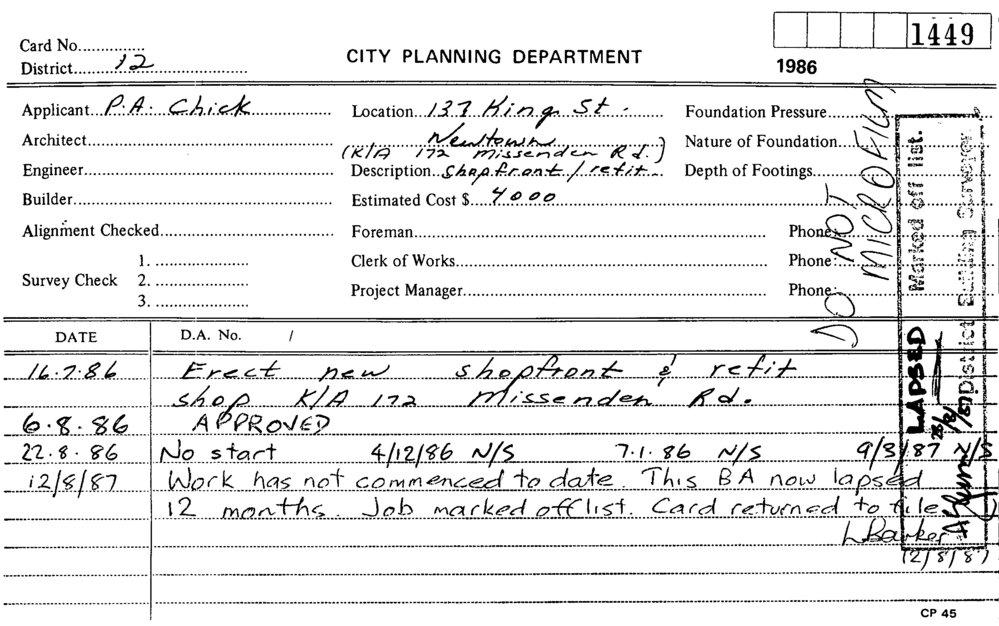 1449
Card No.
District 12
CITY PLANNING DEPARTMENT
1986
Applicant P.A. Chick
Location 137 King St.
Foundation Pressure
Architect
Newtown
Nature of Foundation
(K/A 172 Missenden Rd.)
Engineer
Description shopfront / refit
Depth of Footings
Builder
Estimated Cost $ 4000
Alignment Checked
Foreman
Phone:
Survey Check
1.
2.
3.
Clerk of Works
Phone:
Project Manager
Phone:
DO NOT
MICROFILM
Marked off list.
LAPSED
District Building Surveyor
DATE
D.A. No. /
16.7.86 Erect new shopfront & refit
shop K/A 172 Missenden Rd.
6.8.86 APPROVED
22.8.86 No start 4/12/86 N/S 7.1.86 N/S 9/3/87 N/S
12/8/87 Work has not commenced to date. This BA now lapsed
12 months. Job marked off list. Card returned to file
L Barker
12/8/87
CP 45